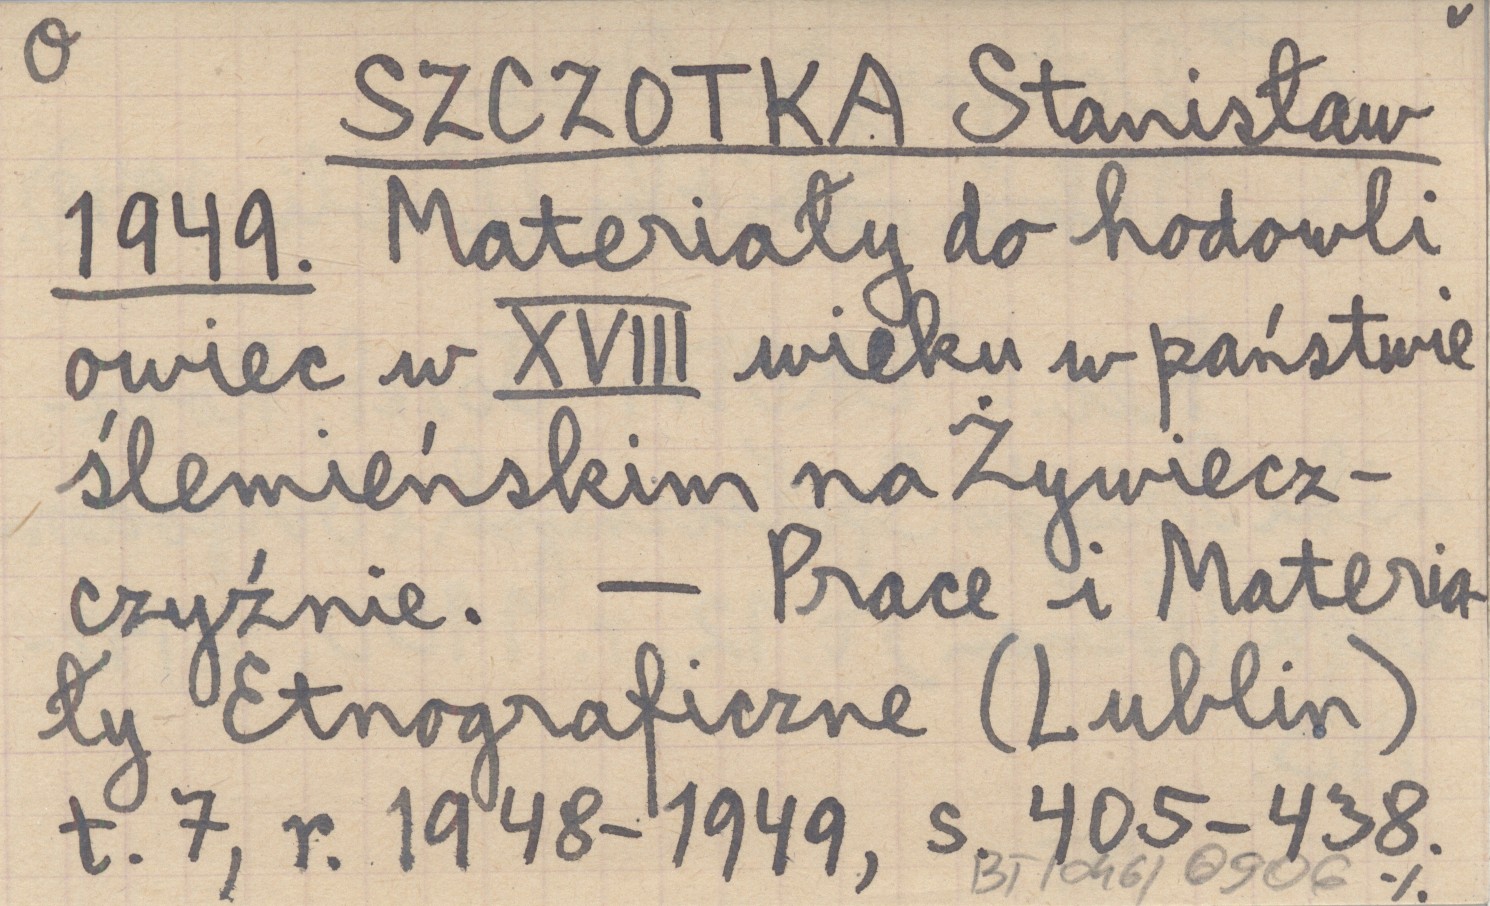 O
SZCZOTKA Stanisław
1949. Materiały do hodowli
owiec w XVIII wieku w państwie
ślemieńskim na Żywiecz-
czyźnie. — Prace i Materia-
ły Etnograficzne (Lublin)
t. 7, r. 1948-1949, s. 405-438.
0906 ./.